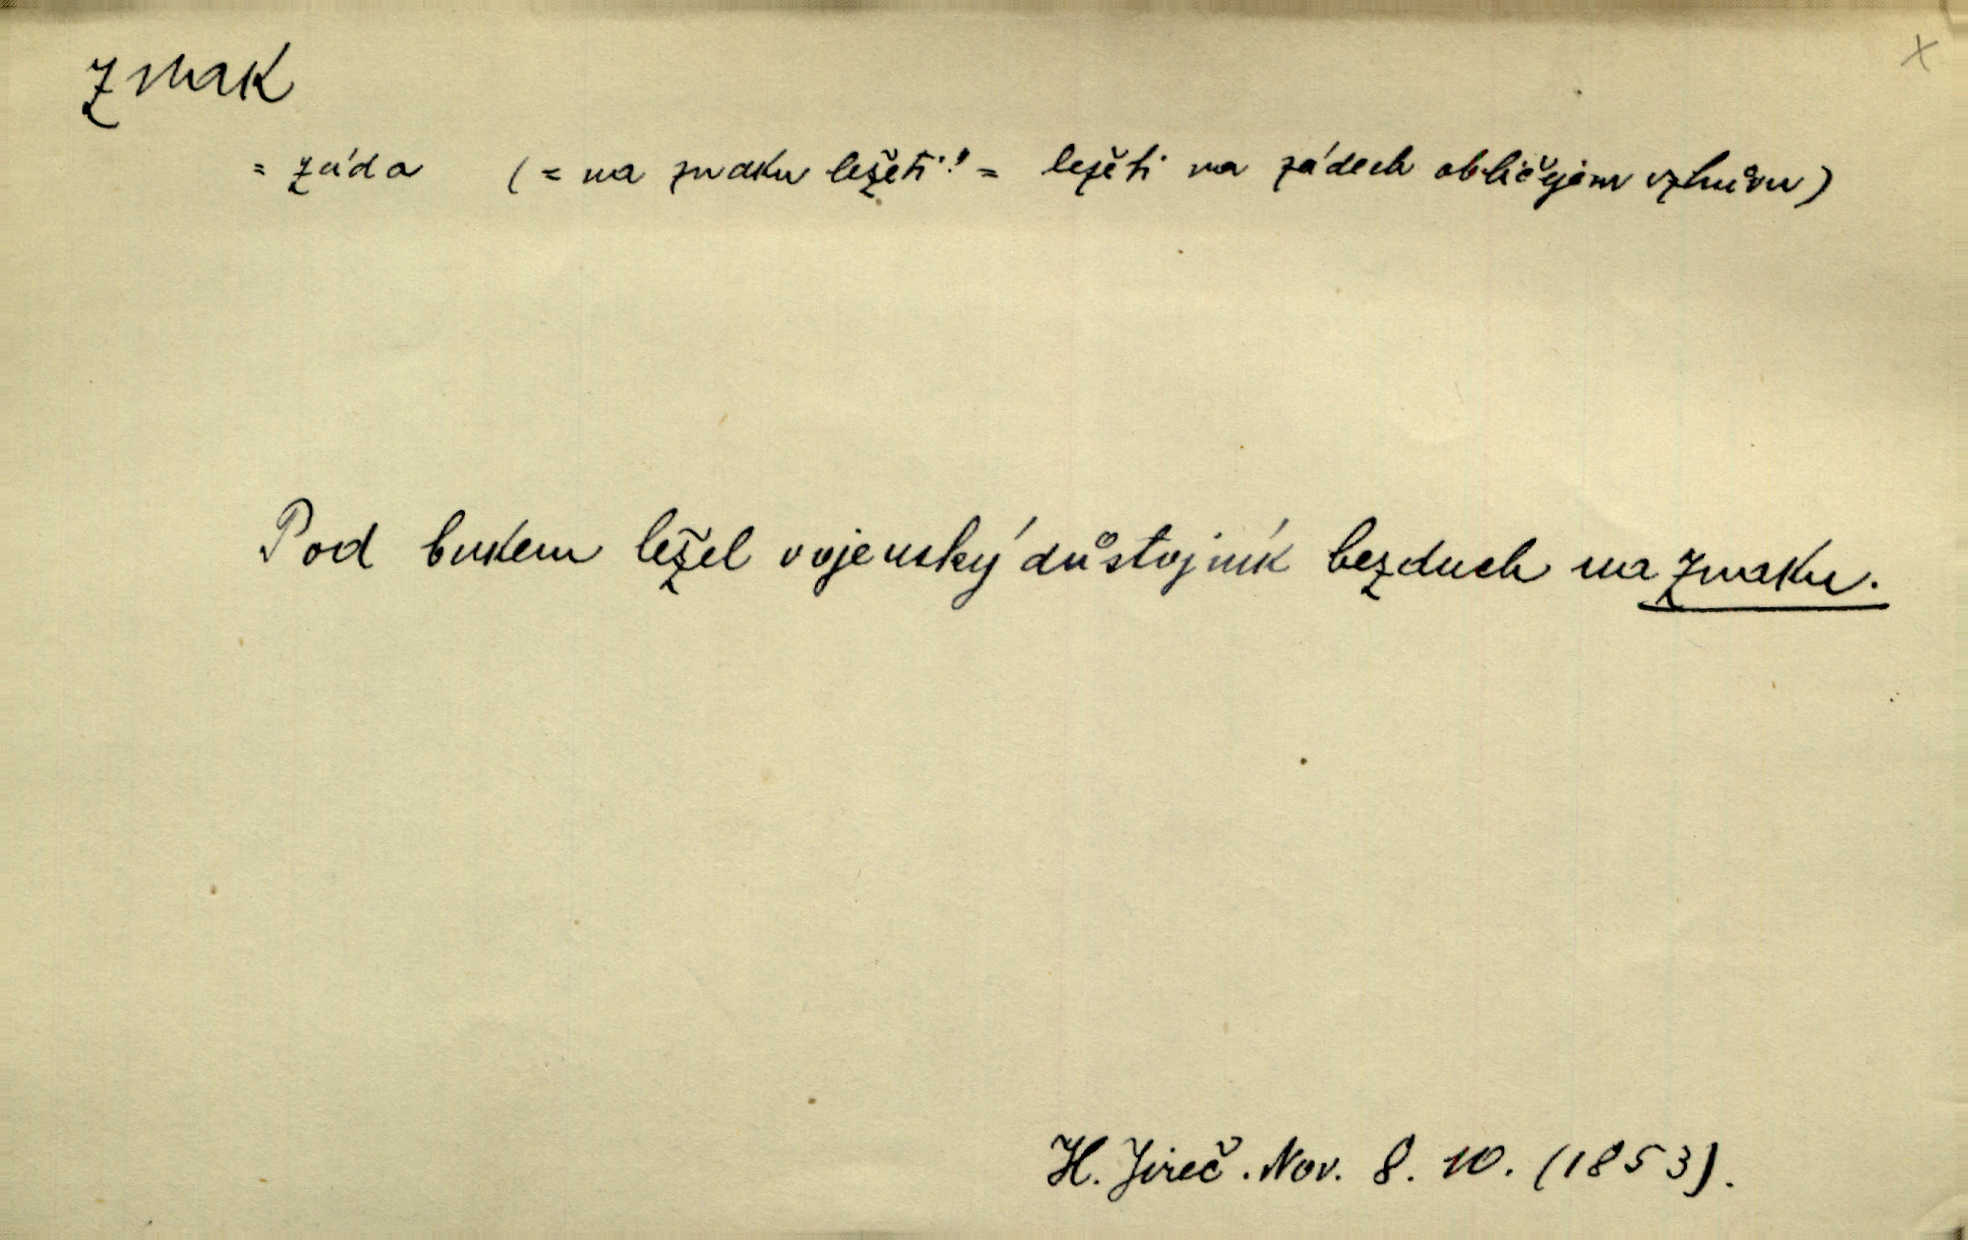 znak
x
= záda (= na znaku ležeti!" = ležeti na zádech obličejem vzhůru)
Pod bukem ležel vojenský důstojník bezduch na znaku.
H. Jireč. Nov. 8. 10. (1853).